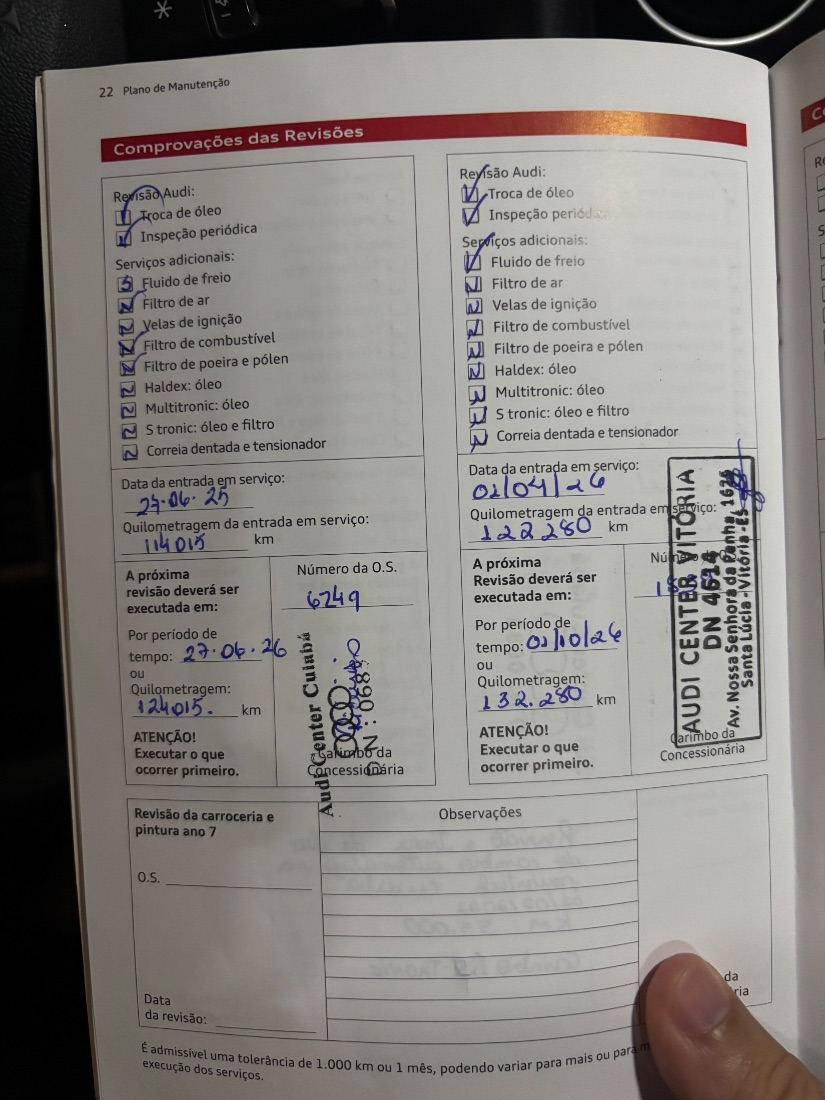 22 Plano de Manutenção
Comprovações das Revisões
Revisão Audi:
Troca de óleo
Inspeção periódica
Serviços adicionais:
S Fluido de freio
N Filtro de ar
N Velas de ignição
N Filtro de combustível
N Filtro de poeira e pólen
N Haldex: óleo
N Multitronic: óleo
N S tronic: óleo e filtro
N Correia dentada e tensionador
Data da entrada em serviço:
27.06.25
Quilometragem da entrada em serviço:
114015 km
A próxima
revisão deverá ser
executada em:
Por período de
tempo: 27.06.26
ou
Quilometragem:
124015. km
ATENÇÃO!
Executar o que
ocorrer primeiro.
Número da O.S.
6249
Audi Center Cuiabá
Carimbo da
Concessionária
Revisão Audi:
Troca de óleo
Inspeção
Serviços adicionais:
Fluido de freio
N Filtro de ar
N Velas de ignição
N Filtro de combustível
N Filtro de poeira e pólen
N Haldex: óleo
N Multitronic: óleo
N S tronic: óleo e filtro
N Correia dentada e tensionador
Data da entrada em serviço:
01/04/26
Quilometragem da entrada em serviço:
122280 km
A próxima
Revisão deverá ser
executada em:
Por período de
tempo: 01/10/26
ou
Quilometragem:
132.280 km
ATENÇÃO!
Executar o que
ocorrer primeiro.
AUDI CENTER VITÓRIA
DN 4614
Av. Nossa Senhora da Penha,
Santa Lúcia - Vitória - ES
Carimbo da
Concessionária
Revisão da carroceria e
pintura ano 7
O.S.
Data
da revisão:
Observações
da
É admissível uma tolerância de 1.000 km ou 1 mês, podendo variar para mais ou para
execução dos serviços.